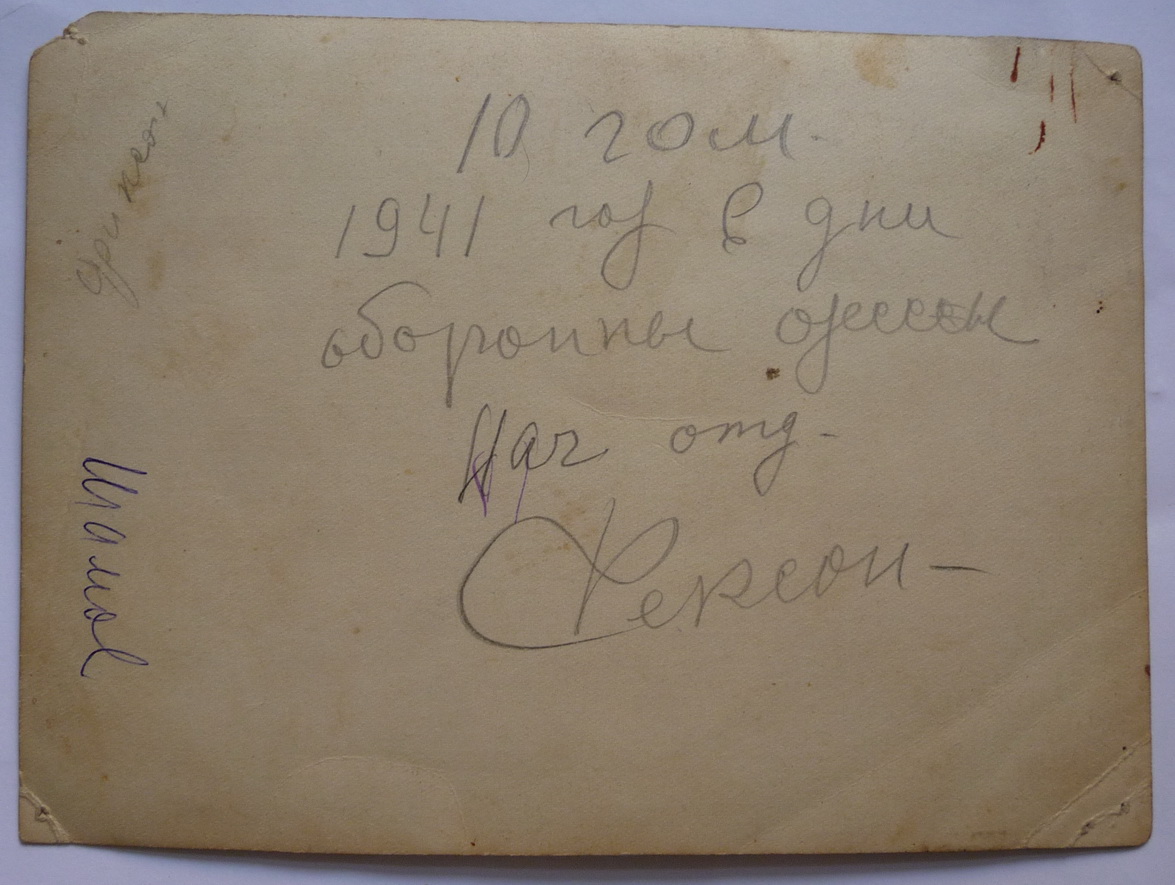 10 гом.
1941 год в дни
оборонны одессы
Нач отд.
Херсон-
Шамов